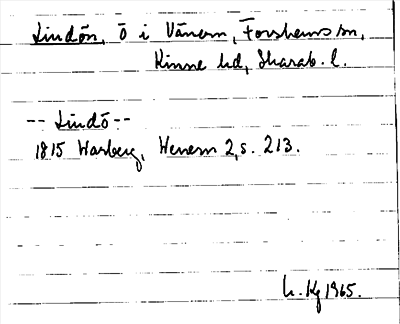 Lindön, ö i Vänern, Forshems sn,
Kinne hd, Skarab. l.
-- Lindö --
1815 Warberg, Wenern 2, s. 213.
1965.